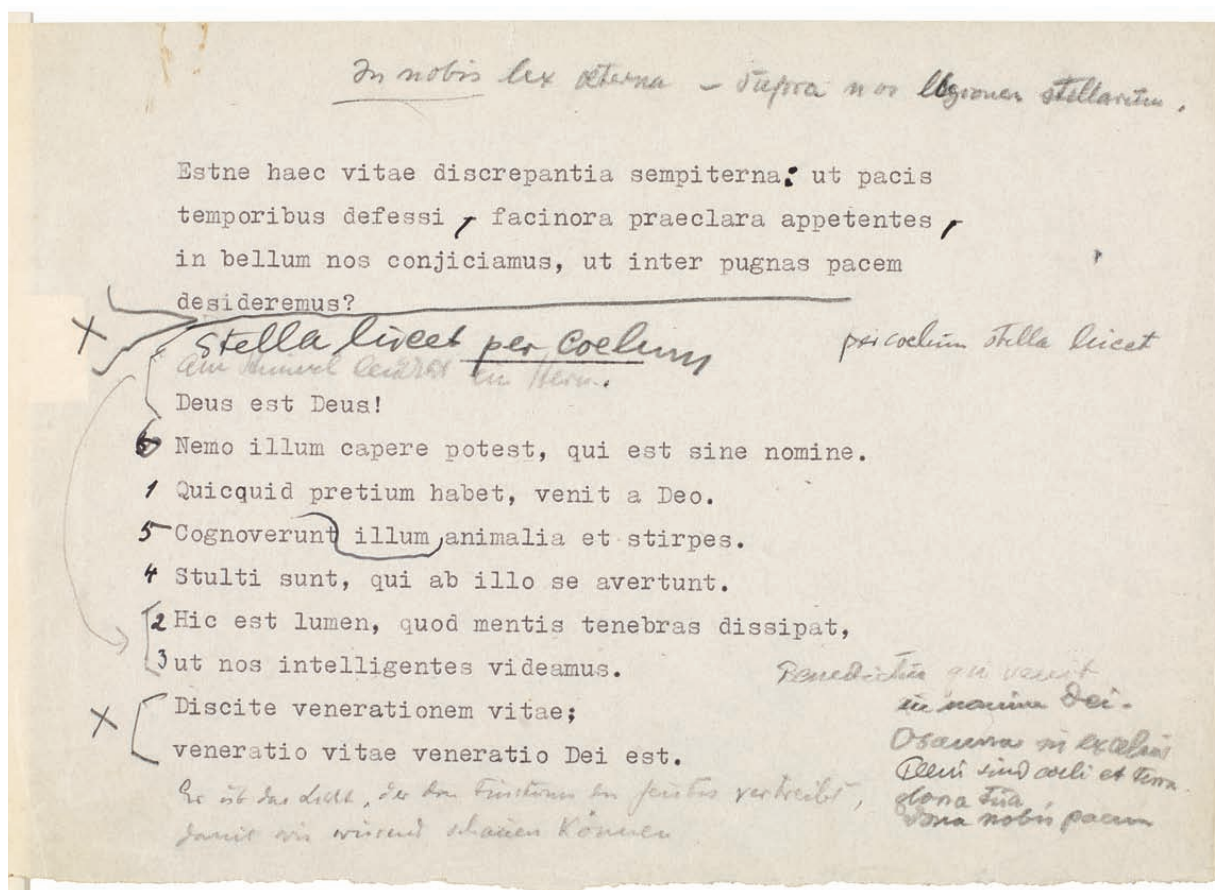 In nobis lex æterna – supra nos legiones stellarum.
Estne haec vitae discrepantia sempiterna: ut pacis
temporibus defessi, facinora praeclara appetentes,
in bellum nos conjiciamus, ut inter pugnas pacem
desideremus?
X Stella lucet per coelum
per coelum stella lucet
am Himmel leuchtet ein Stern.
Deus est Deus!
6 Nemo illum capere potest, qui est sine nomine.
1 Quicquid pretium habet, venit a Deo.
5 Cognoverunt illum animalia et stirpes.
4 Stulti sunt, qui ab illo se avertunt.
2 Hic est lumen, quod mentis tenebras dissipat,
3 ut nos intelligentes videamus.
X Discite venerationem vitae;
veneratio vitae veneratio Dei est.
Er ist das Licht, der den des Geistes vertreibt,
damit wir wissend schauen können
qui venit
in nomine Dei.
Osanna in excelsis
coeli et terra
gloria tua,
dona nobis pacem